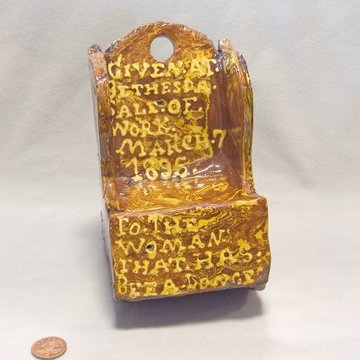 GIVEN: AT:
BETHESDA:
SALE: OF
WORK:
MARCH: 7
1895:
TO: THE
WOMAN:
THAT: HAS: